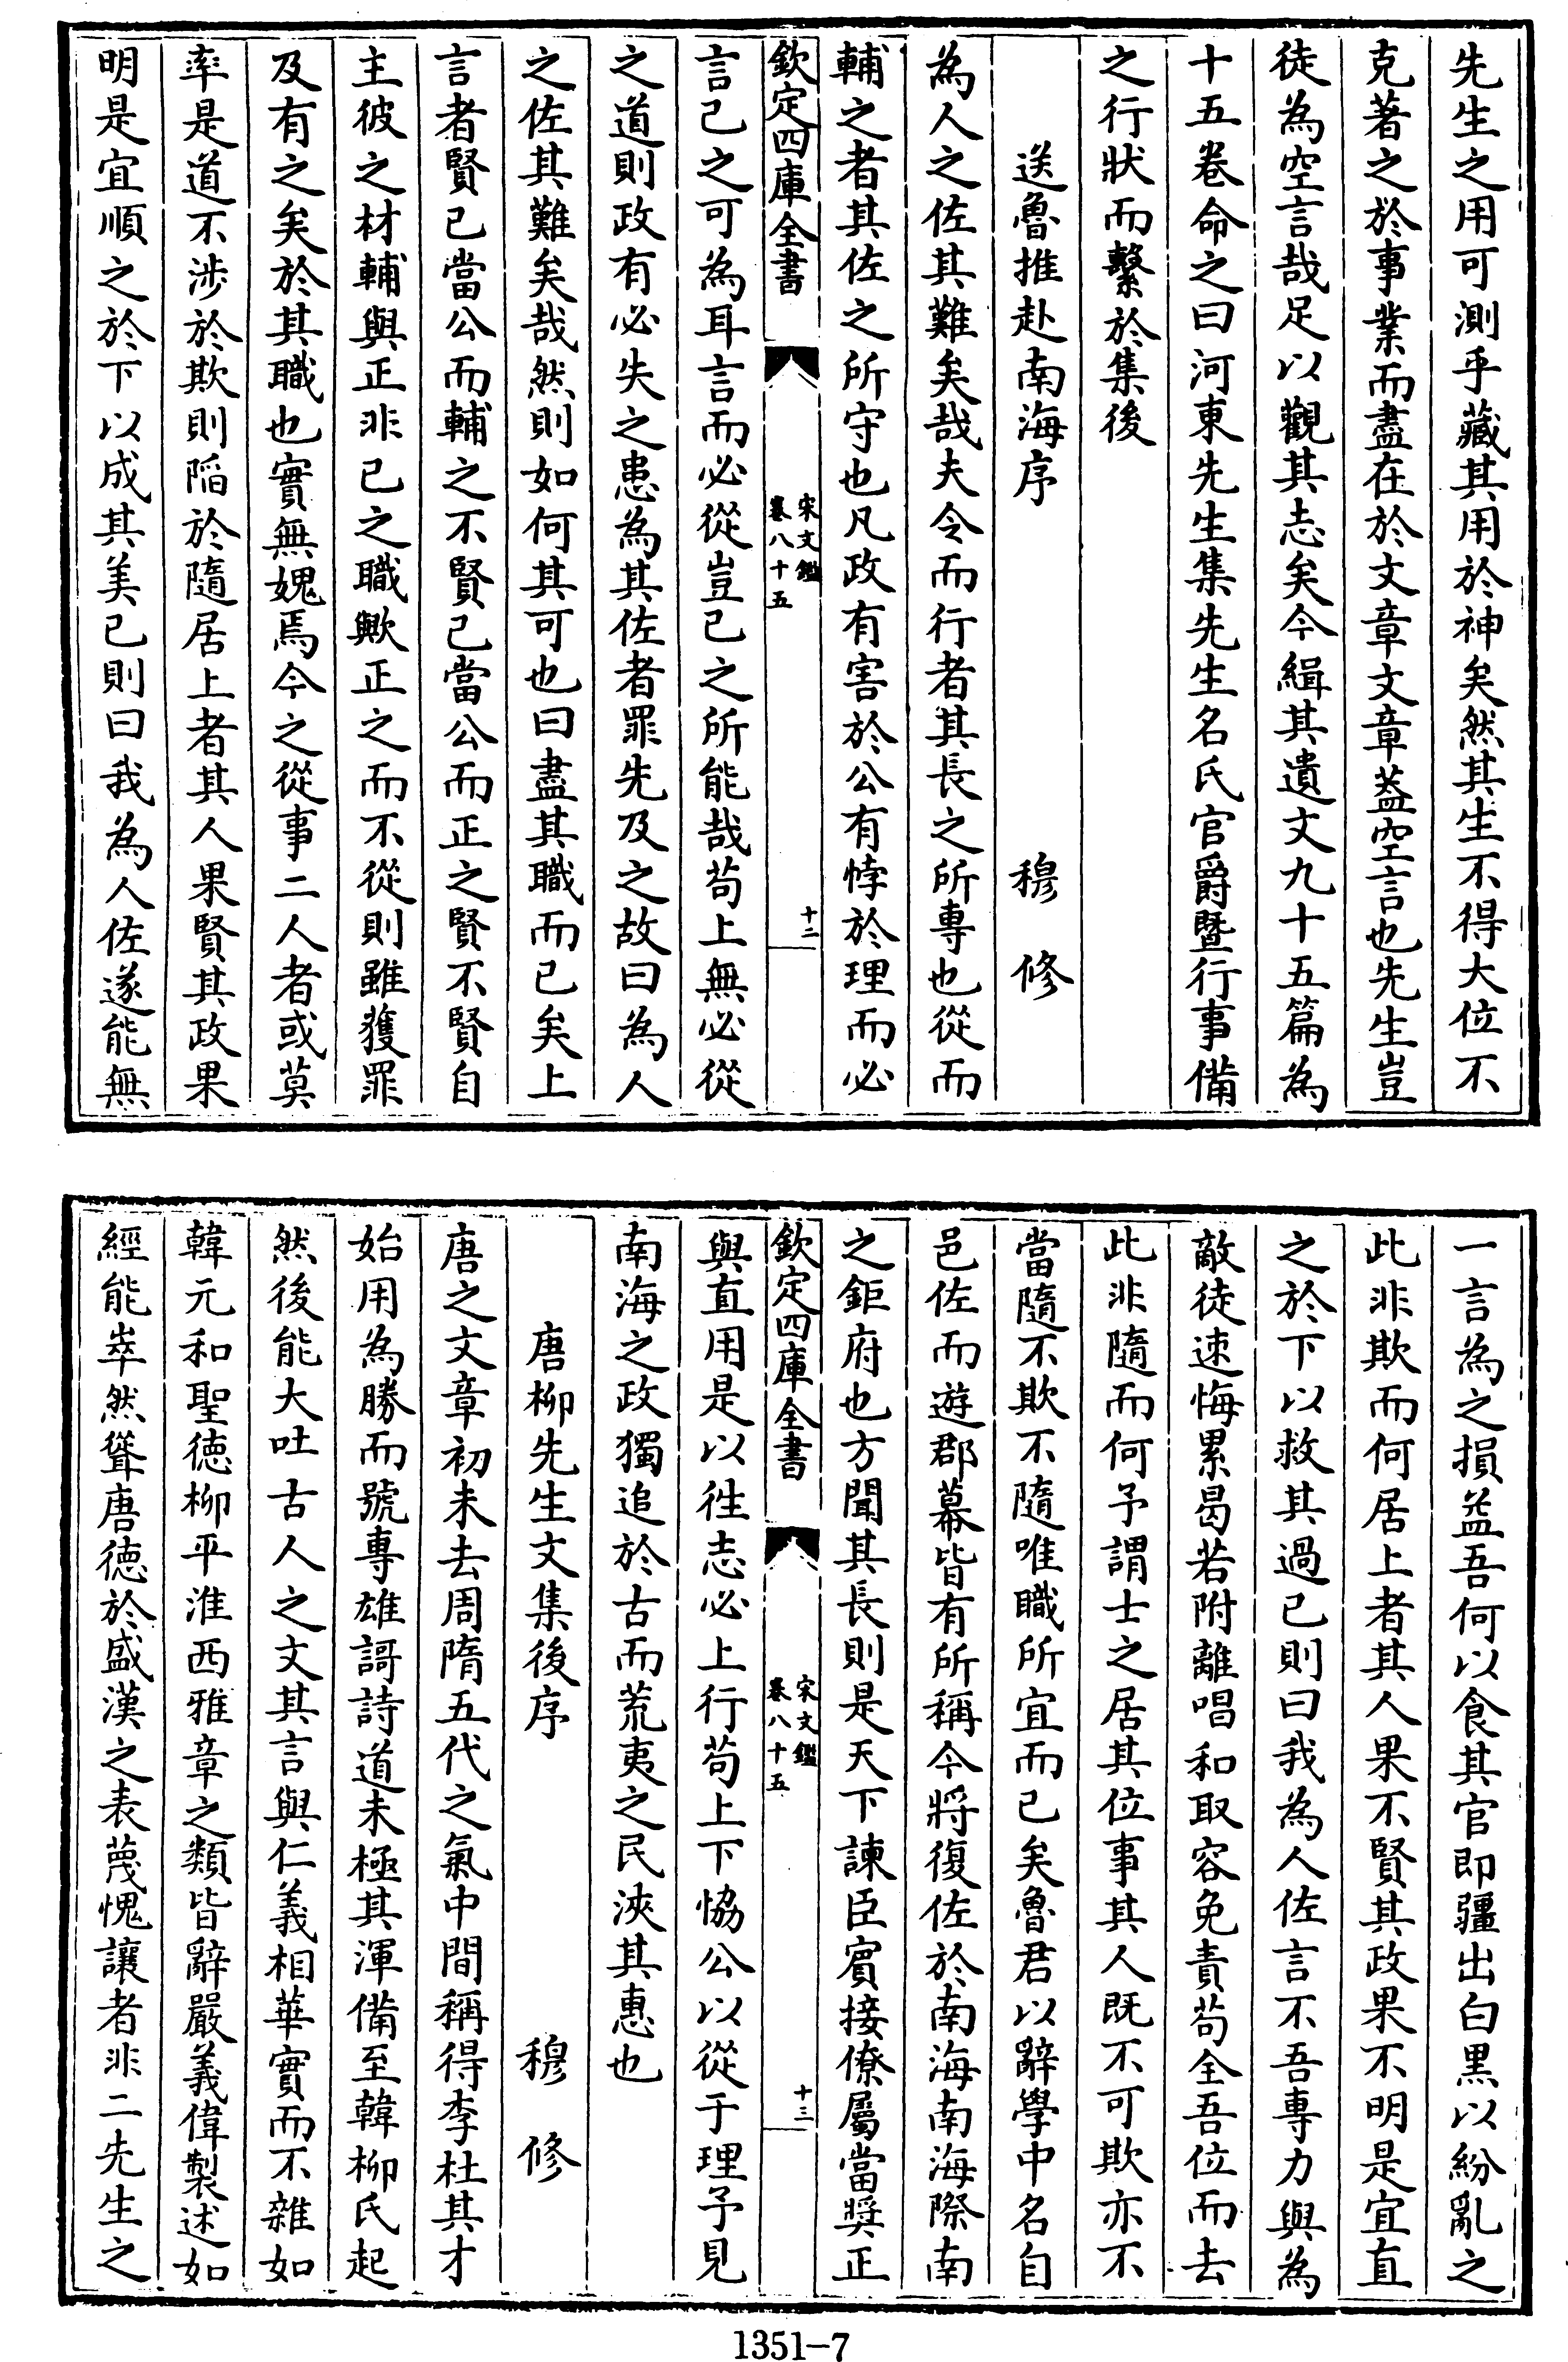 先生之用可測乎藏其用於神矣然其生不得大位不
克著之於事業而盡在於文章文章葢空言也先生豈
徒為空言哉足以觀其志矣今緝其遺文九十五篇為
十五卷命之曰河東先生集先生名氏官爵暨行事備
之行狀而繫於集後
送魯推赴南海序 穆修
為人之佐其難矣哉夫令而行者其長之所專也從而
輔之者其佐之所守也凡政有害於公有悖於理而必
欽定四庫全書 宋文鑑 卷八十五 十二
言己之可為耳言而必從豈己之所能哉苟上無必從
之道則政有必失之患為其佐者罪先及之故曰為人
之佐其難矣哉然則如何其可也曰盡其職而已矣上
言者賢已當公而輔之不賢已當公而正之賢不賢自
主彼之材輔與正非己之職歟正之而不從則雖獲罪
及有之矣於其職也實無媿焉今之從事二人者或莫
率是道不涉於欺則陷於隨居上者其人果賢其政果
明是宜順之於下以成其美已則曰我為人佐遂能無
一言為之損益吾何以食其官即疆出白黒以紛亂之
此非欺而何居上者其人果不賢其政果不明是宜直
之於下以救其過已則曰我為人佐言不吾專力與為
敵徒速悔累曷若附離唱和取容免責苟全吾位而去
此非隨而何予謂士之居其位事其人既不可欺亦不
當隨不欺不隨唯職所宜而已矣魯君以辭學中名自
邑佐而遊郡幕皆有所稱今將復佐於南海南海際南
之鉅府也方聞其長則是天下諫臣賔接僚屬當奨正
欽定四庫全書 宋文鑑 卷八十五 十三
與直用是以徃志必上行苟上下恊公以從于理予見
南海之政獨追於古而荒夷之民浹其惠也
唐柳先生文集後序 穆修
唐之文章初未去周隋五代之氣中間稱得李杜其才
始用為勝而號專雄謌詩道未極其渾備至韓柳氏起
然後能大吐古人之文其言與仁義相華實而不雜如
韓元和聖徳柳平淮西雅章之類皆辭嚴義偉製述如
經能崒然聳唐徳於盛漢之表蔑愧讓者非二先生之
1351-7